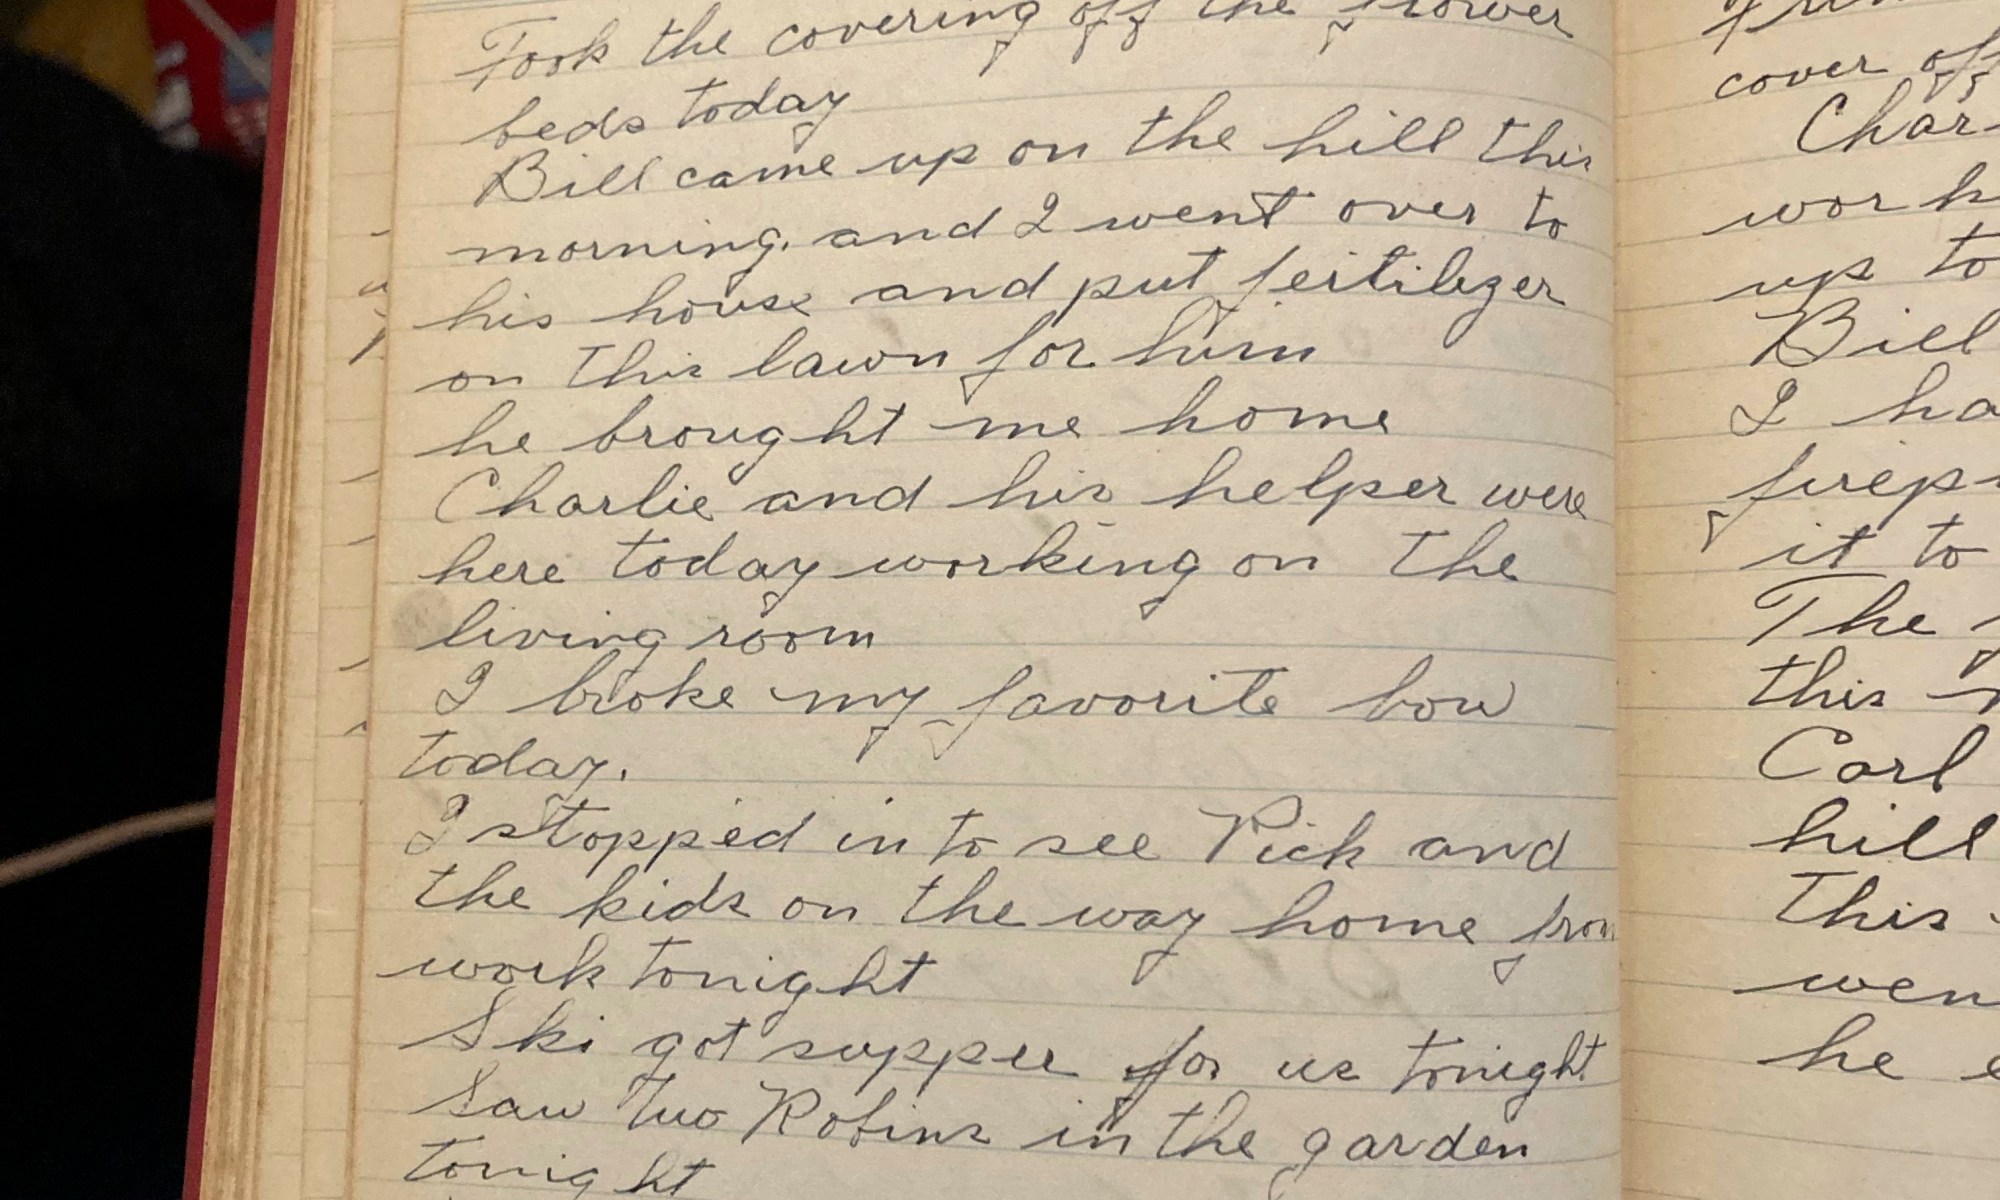 Took the covering off the flower
beds today
Bill came up on the hill this
morning. and I went over to
his house and put fertilizer
on this lawn for him
he brought me home
Charlie and his helper were
here today working on the
living room
I broke my favorite bow
today.
I stopped in to see Rick and
the kids on the way home from
work tonight
Ski got supper for us tonight
Saw two Robins in the garden
tonight
cover off
Char
work
up to
Bill
I ha
firep
it to
The
this
Carl
hill
This
wen
he